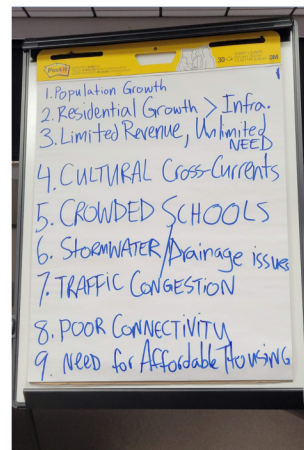 Post-it
30
3M
1. Population Growth
2. Residential Growth > Infra.
3. Limited Revenue, Unlimited
NEED
4. CULTURAL Cross-Currents
5. CROWDED SCHOOLS
6. STORMWATER/Drainage issues
7. TRAFFIC CONGESTION
8. POOR CONNECTIVITY
9. Need for Affordable Housing